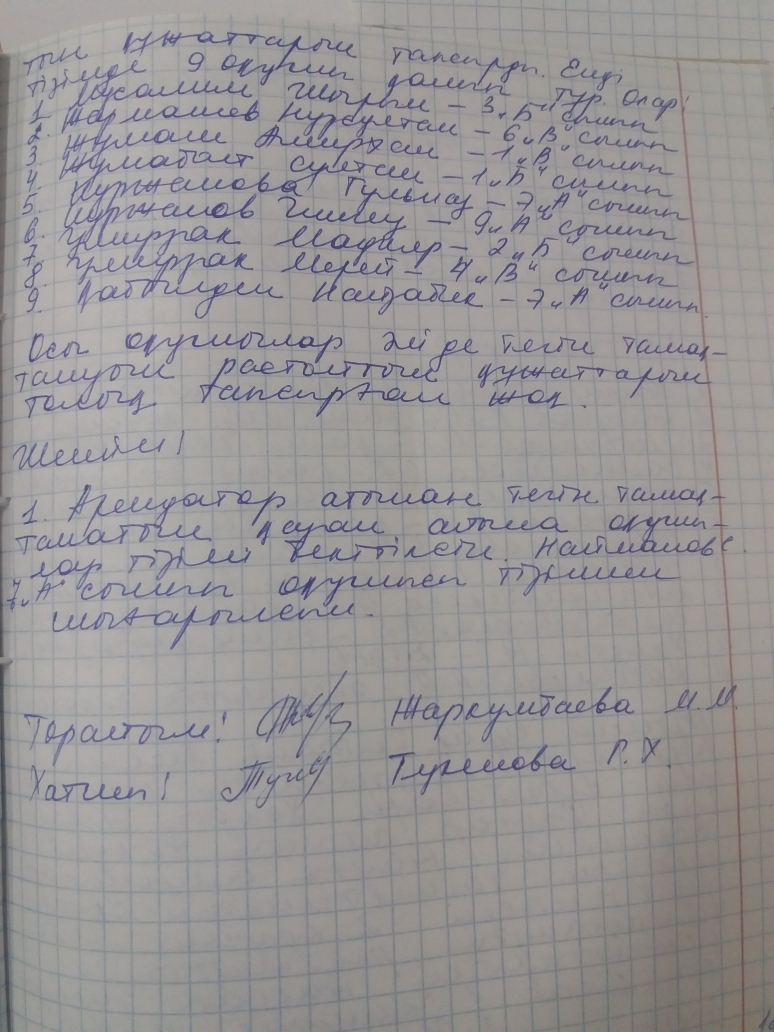 тын құжаттарын тапсырды. Енді
тізімде 9 оқушы қалып тұр. Олар:
1. Мұсалим Шырын – 3 „Б" сынып
2. Жармашев Нурсултан – 6 „В" сынып
3. Жұмаш Амирхан – 1 „В" сынып
4. Жұмабаст Султан – 1 „Б" сынып
5. Нуржанова Гульназ – 7 „А" сынып
6. Нуржанов – 9 „А" сынып
7. Үмирзак Мадияр – 2 „Б" сынып
8. Үмирзак Мерей – 4 „В" сынып
9. Қабылден – 7 „А" сынып.
Осы оқушылар әлі де тегін тамақ-
тануын растайтын құжаттарын
толық тапсырған жоқ.
Шешім!
1. Арендатор атынан тегін тамақ-
танатын қазан айына оқушы-
лар тізімі бекітілсін. Найманов С.
7 „А" сынып оқушысы тізімнен
шығарылсын.
Төрайым! Жаркумбаева М.М.
Хатшы! Туренова Г.Х.